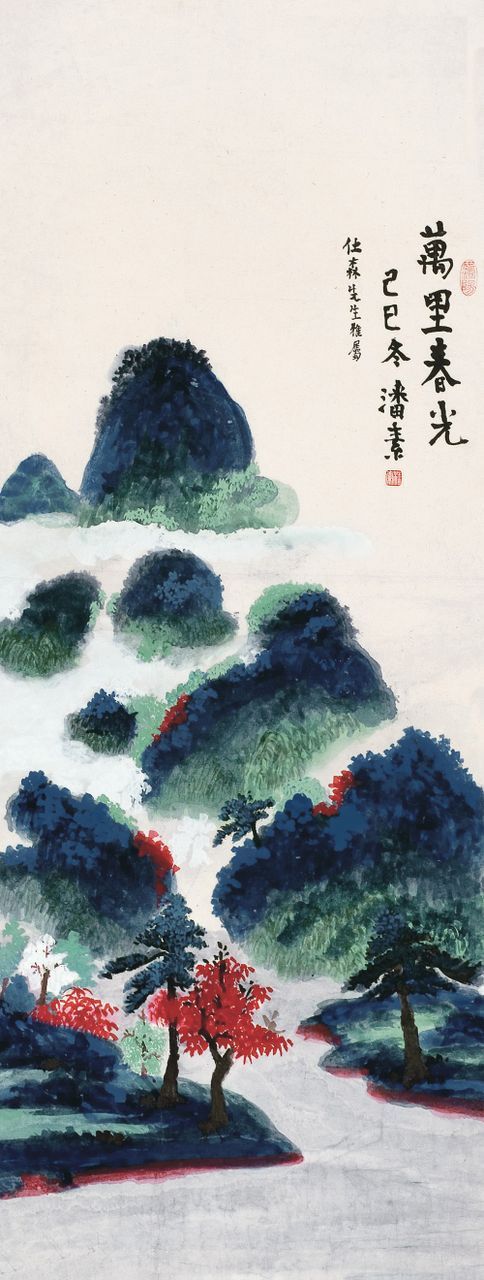 萬里春光
己巳冬 潘素
仕森先生雅屬